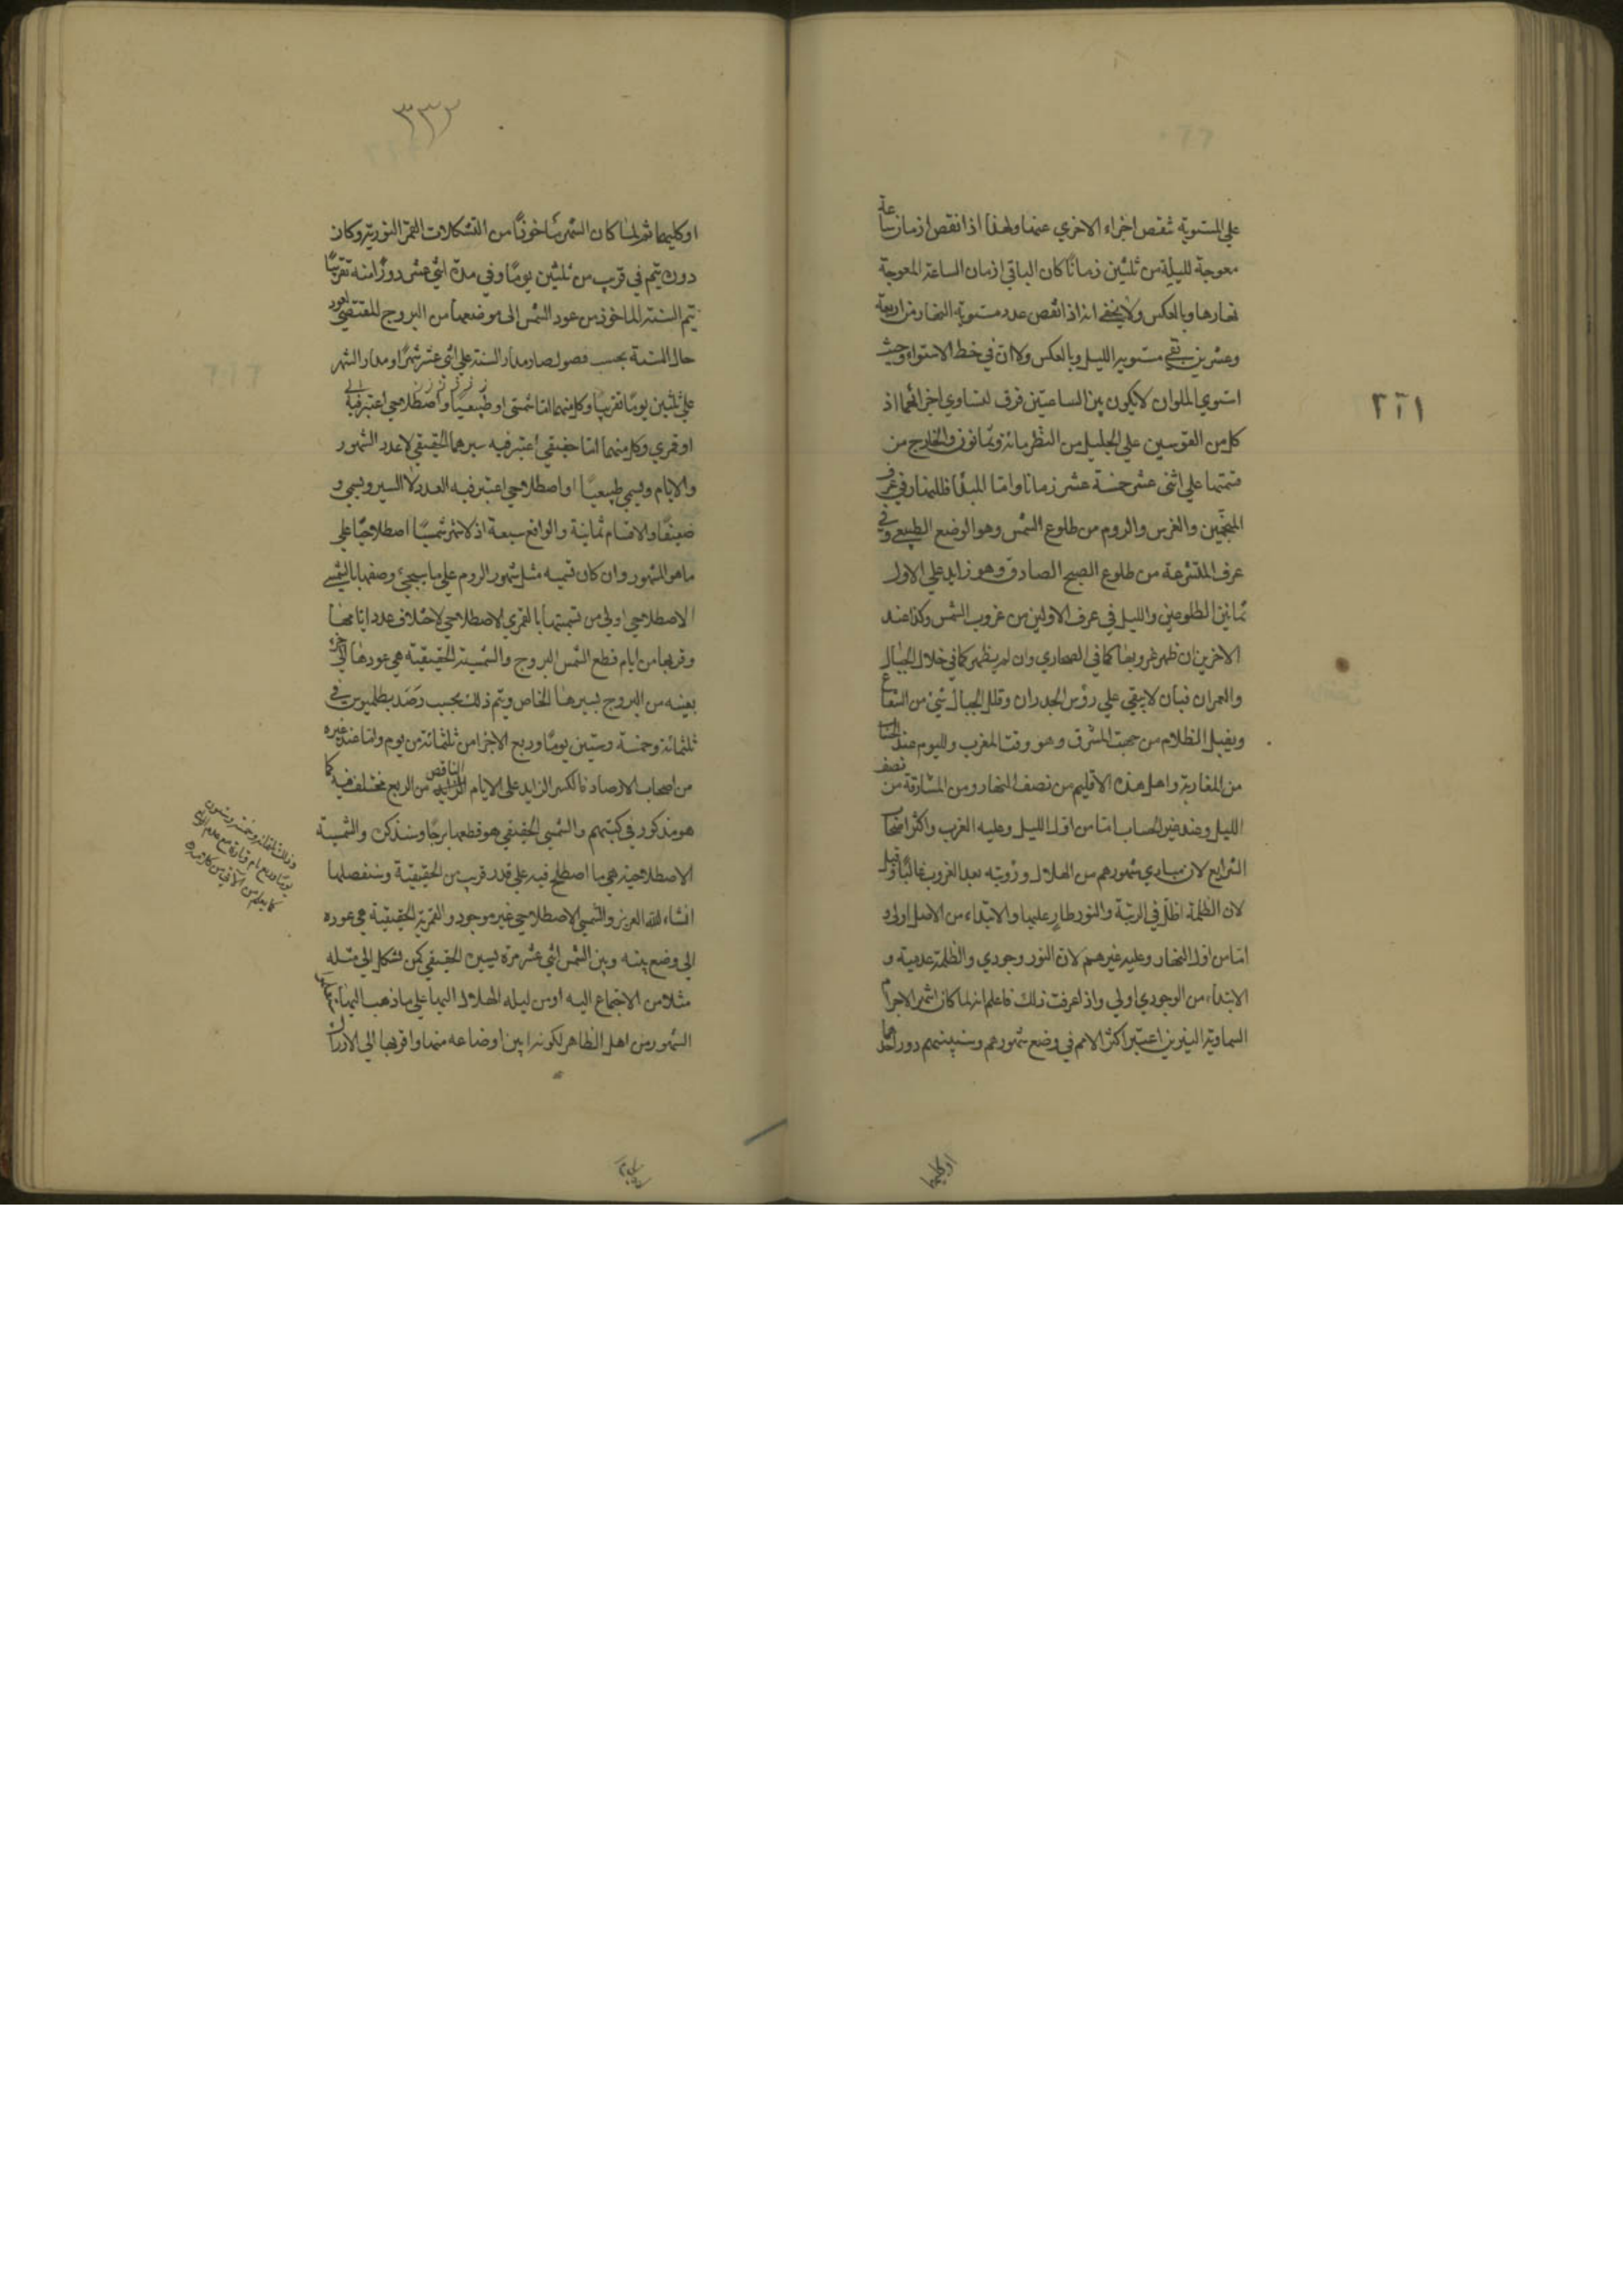 على المستوية تنقص اجزاء الاخري عنها ولهذا اذا نقص ازمان ساعة
معوجة لليلة من ثلثين زمانًا كان الباقي ازمان الساعة المعوجة
نهارها وبالعكس ولا يخفي انه اذا نقص عدد مستوية النهار من اربعة
وعشرين بقي مستوية الليل وبالعكس ولا ان في خط الاستواء وحيث
استوي الملوان لا يكون بين الساعتين فرق لتساوي اجزائهما اذ
كل من القوسين على الجليل من النظر مائة وثمانون والخارج من
قسمتها على اثنى عشر خمسة عشر زمانا واما المبدأ فللنهار في عرف
المنجمين والفرس والروم من طلوع الشمس وهو الوضع الطبيعي وفي
عرف المتشرعة من طلوع الصبح الصادق وهو زايد على الاول
بما بين الطلوعين والليل في عرف الاولين من غروب الشمس وكذا عند
الاخرين ان ظهر غروبها كما في الصحاري وان لم يظهر كما في خلال الجبال
والعمران فبان لا يبقي على رؤس الجدران وقلل الجبال شئ من الشعاع
ويقبل الظلام من جهة المشرق وهو وقت المغرب ولليوم عند الحساب
من المغاربة واهل هذه الاقليم من نصف النهار ومن المشارقة من نصف
الليل وعند غير الحساب اما من اول الليل وعليه العرب واكثر اصحاب
الشرايع لان مبادي شهورهم من الهلال ورؤيته بعد الغروب غالبًا وقيل
لان الظلمة اقل في الرتبة والنور طار عليها والابتداء من الاصل اولى و
اما من اول النهار وعليه غيرهم لان النور وجودي والظلمة عدمية و
الابتداء من الوجودي اولي واذا عرفت ذلك فاعلم انه لما كان اشهر الاجرام
السماوية النيرين اعتبر اكثر الامم في وضع شهورهم وسنينهم دور احدهما
اوكليهما
٢٦١
٣٣٢
اوكليهما ثم لما كان الشهر مأخوذًا من التشكلات القمر النورية وكان
دوره يتم في قريب من ثلثين يومًا وفي مدة اثني عشر دورًا منه تقريبًا
يتم السنة الماخوذ من عود الشمس الى موضعها من البروج المقتضي لعود
حال السنة بحسب فصول صار مدار السنة على اثني عشر شهرًا ومدار الشهر
على ثلثين يومًا تقريبًا وكل منهما اما شمسي او طبيعيًا واصطلاحي اعتبر فيه
او قمري وكل منهما اما حقيقي اعتبر فيه سيرهما الحقيقي لا عدد الشهور
والايام ويسمي طبيعيًا او اصطلاحي اعتبر فيه العدد لا السير ويسمي و
ضعيفًا والاقسام ثمانية والواقع سبعة اذ لا شهر شمسيًا اصطلاحيًا على
ما هو المشهور وان كان تسميه مثل شهور الروم على ما سيجئ وصفها بالشمسي
الاصطلاحي اولي من تسميتها بالقمري الاصطلاحي لاختلاف عدد ايامها
وقربها من ايام قطع الشمس البروج والشمسية الحقيقية هي عودها الي جزء
بعينه من البروج بسيرها الخاص ويتم ذلك بحسب رصد بطلميوس في
ثلثمائة وخمسة وستين يومًا وربع الاجزا من ثلثمائة من يوم واما عند غيره
من اصحاب الارصاد فالكسر الزايد على الايام الناقص من الربع مختلف فيه كما
هو مذكور في كتبهم والشمسي الحقيقي هو قطعها برجًا وسنذكره والشمسية
الاصطلاحية هي ما اصطلح فيه على قدر قريب من الحقيقية وسنفصلها
انشاء الله العزيز والشمسي الاصطلاحي غير موجود والقمرية الحقيقية هي عوده
الى وضع بينه وبين الشمس اثني عشر مرة بسيره الحقيقي كمن تشكل الى مثله
مثلا من الاجتماع اليه اومن ليلة الهلال اليها على ما ذهب اليها
الشهور من اهل الظاهر لكونه ابين اوضاعه منها واقربها الى الادراك
وذلك ثلثمائة وخمسة وستون
يومًا وربع تام